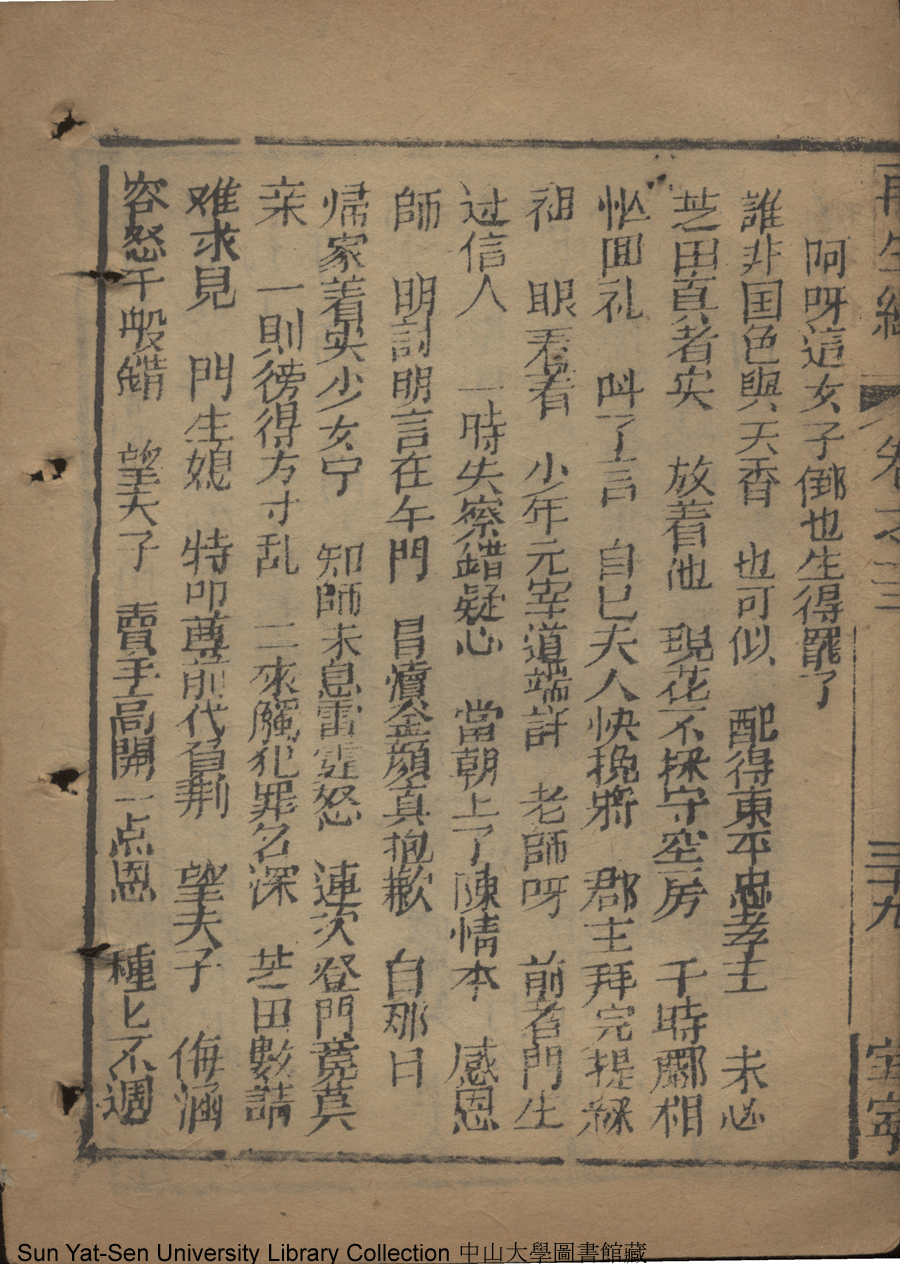 再生緣 卷之三 三十九
阿呀這女子倒也生得罷了
誰非国色與天香 也可似 配得東平忠孝王 未必
芝田真者实 放着他 現花不採守空房 千時酈相
忙囬礼 呌了言 自己夫人快挽將 郡主拜完提綵
袖 眼看看 少年元宰道端詳 老師呀 前者門生
过信人 一時失察錯疑心 當朝上了陳情本 感恩
師 明討明言在午門 冒瀆金顔真抱歉 自那日
帰家着实少女宁 知師未息雷霆怒 連次登門竟莫
亲 一則徬得方寸乱 二來觸犯罪名深 芝田數請
难求見 門生媳 特叩尊前代負荆 望夫子 侮涵
容恕千般錯 望夫子 賣手高開一点恩 種匕不週
Sun Yat-Sen University Library Collection 中山大學圖書館藏